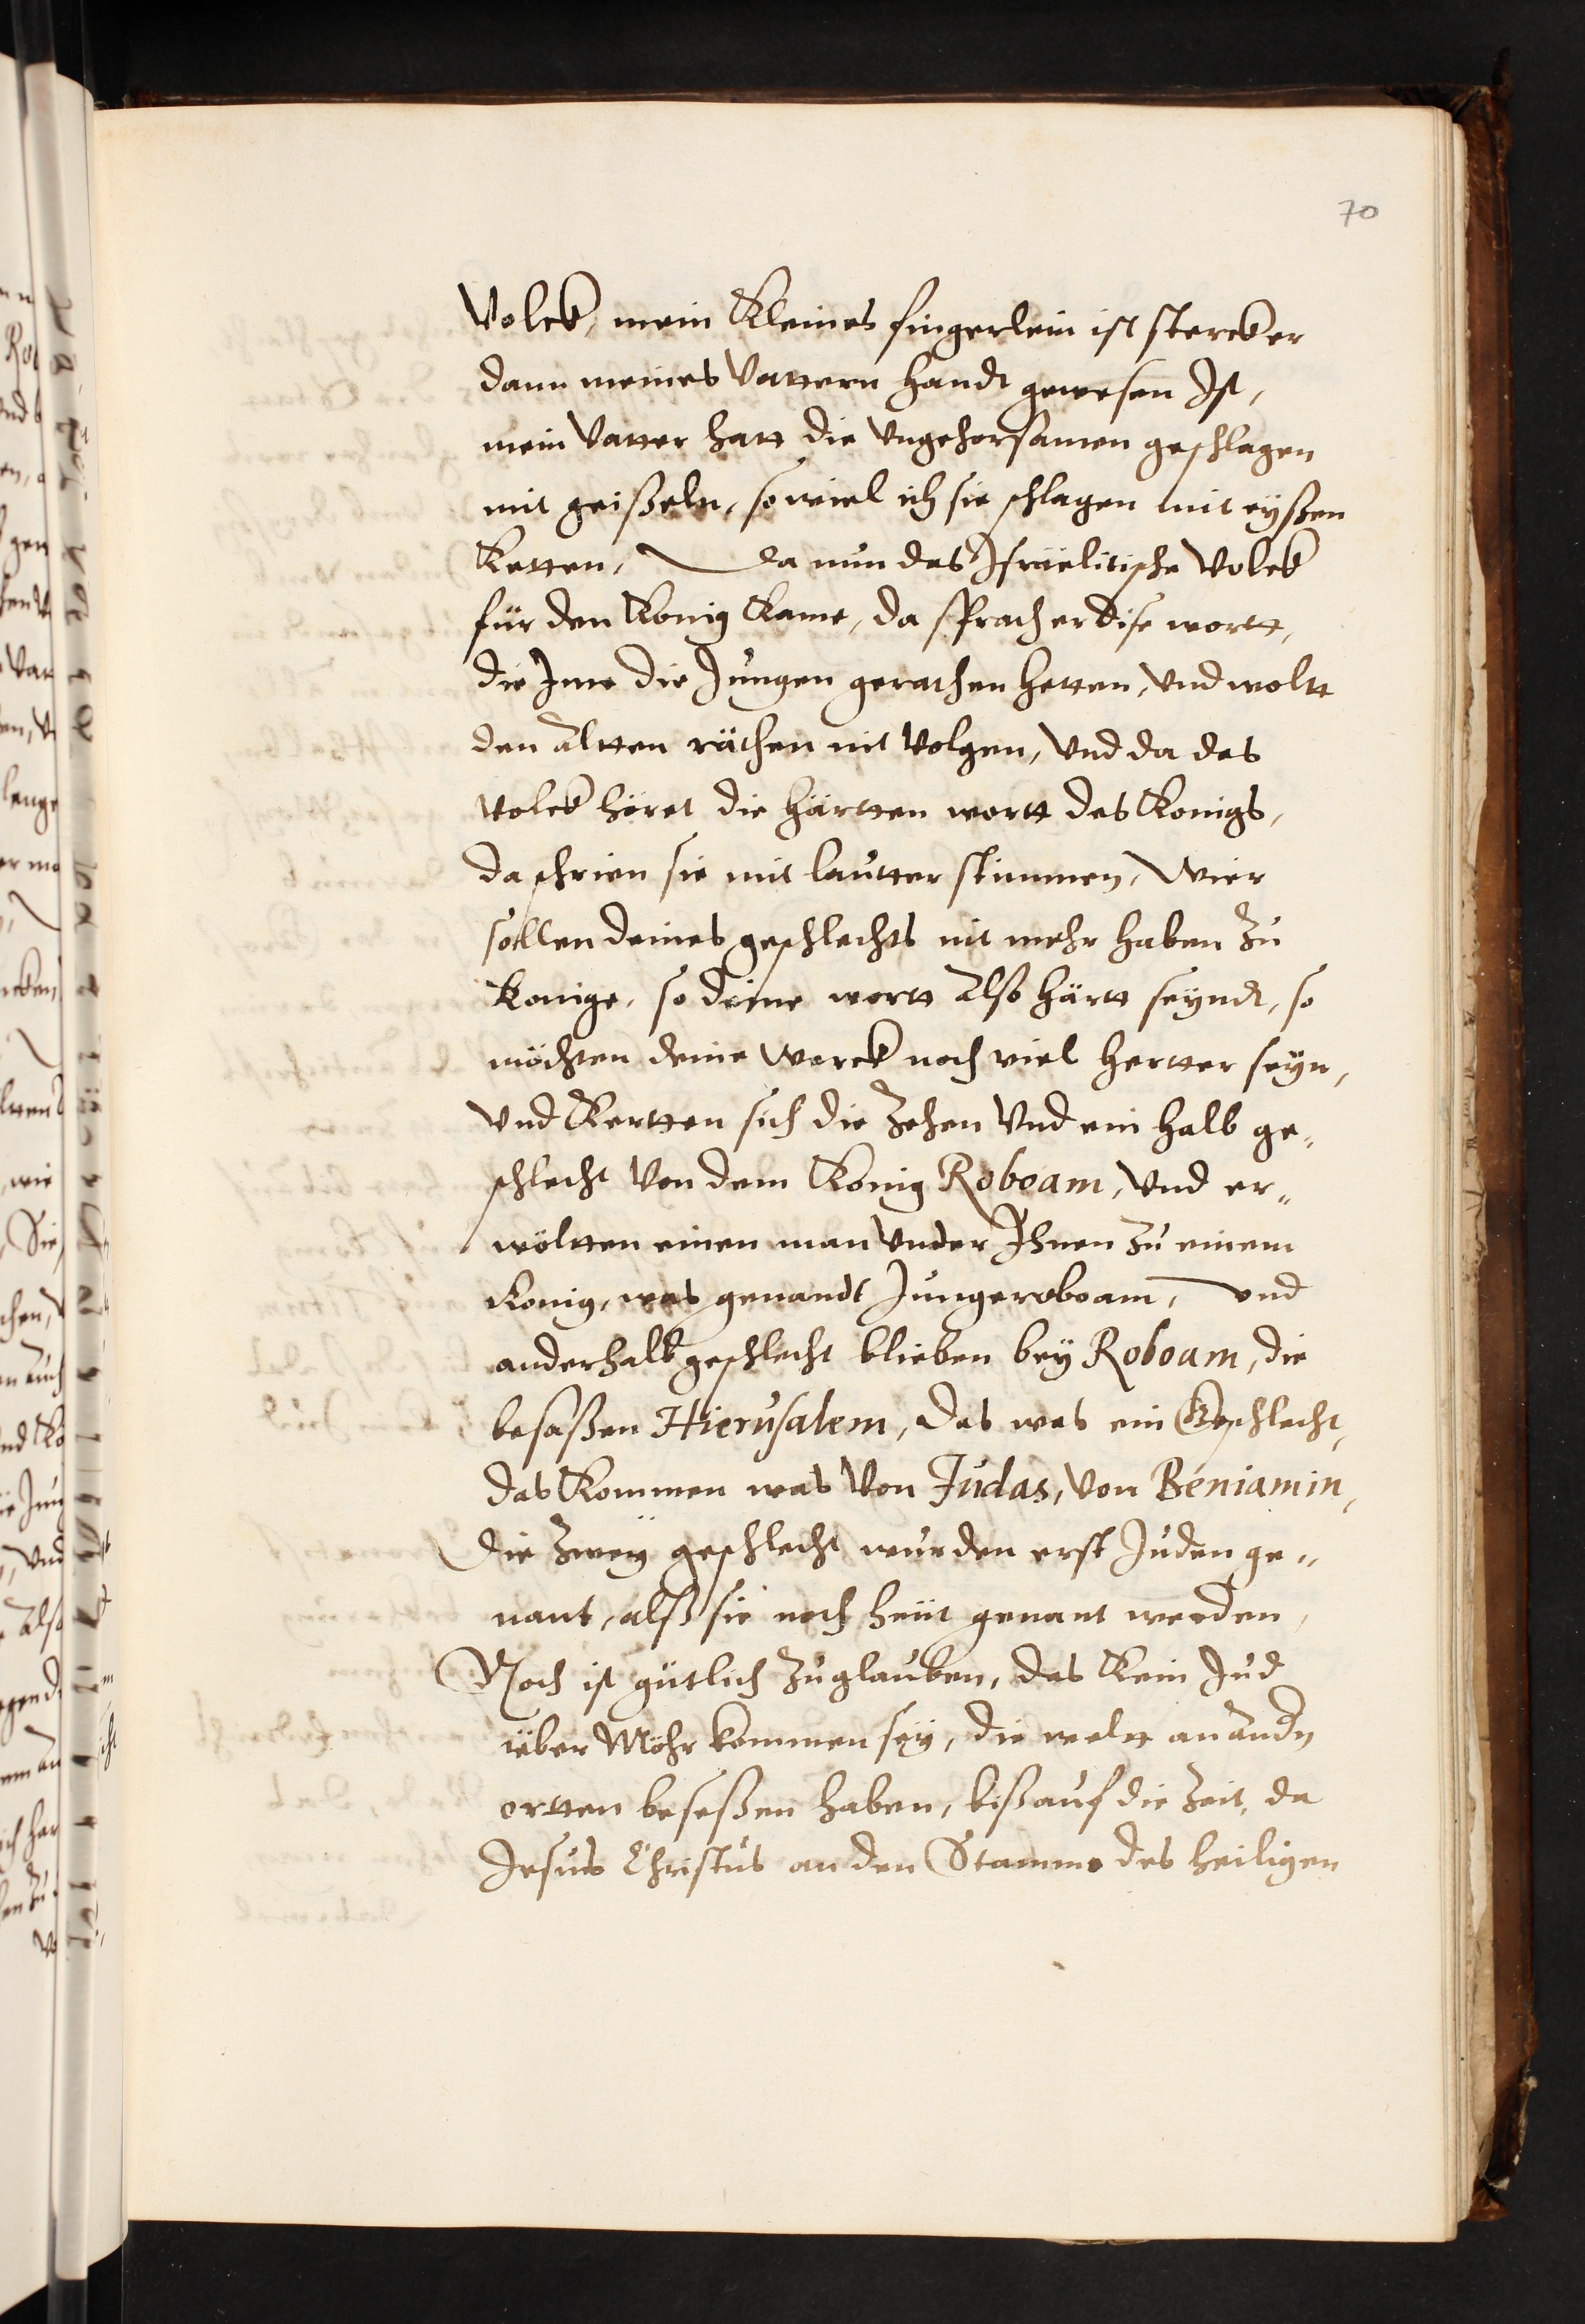 70
Volck, mein Kleines fingerlein ist stercker
dann meines Vattern handt gewesen Ist,
mein Vatter hatt die Vngehorsamen geschlagen
mit geißeln, so wiel ich sie schlagen mit eyßen
Ketten, Da nun das Israelitische Volck
für den Konig Kame, da sprach er dise wortt,
die Ime die Jungen gerathen hetten, Vnd woltt
den altten räthen nit Volgen, Vnd da das
Volck höret die härtten wortt des Konigs,
da schrien sie mit lautter stimmen, Wier
sollen deines geschlechts nit mehr haben zu
Konige, so deine wortt also härtt seyndt, so
möchten deine Werck noch viel hertter seyn,
Vnd Kertten sich die zehen Vnd ein halb ge„
schlecht Von dem König Roboam, Vnd er„
wöltten einen man Vnder Ihnen zu einem
Konig, was genandt Jungeroboam, Vnd
anderhalb geschlecht blieben bey Roboam, die
besaßen Hierusalem, das was ein Geschlecht,
das Kommen was Von Judas, Von Beniamin,
Die zwey geschlecht wurden erst Juden ge„
nant, alß sie noch heüt genant werden,
Noch ist gütlich zuglauben, das Kein Jud
über Möhr kommen sey, die weltt an andn
ortten beseßen haben, biß auf die Zeit, da
Jesus Christus an den Stamme des heiligen